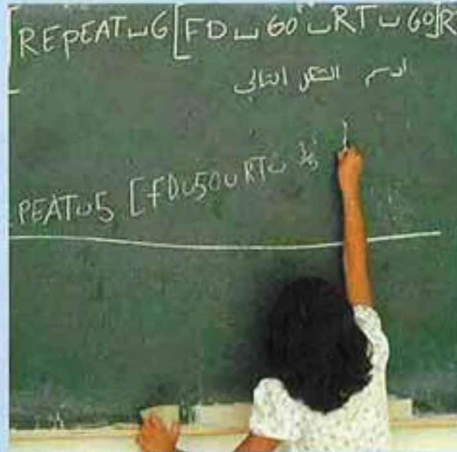 [REPEAT␣6[FD␣60␣RT␣60]R
ارسم الشكل التالي
PEAT␣5 [FD␣50␣RT␣